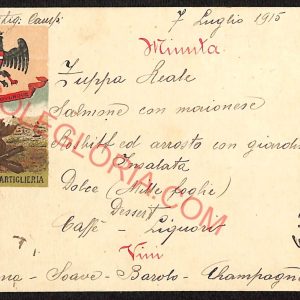 7 Luglio 1915
Minuta
Zuppa Reale
Salmone con maionese
Rosbiff ed arrosto con
Insalata
Dolce (Mille foglie)
Dessert
Caffè - Liquori
Vini
Soave - Barolo - Champagne
ARTIGLIERIA
OLEGLORIA.COM